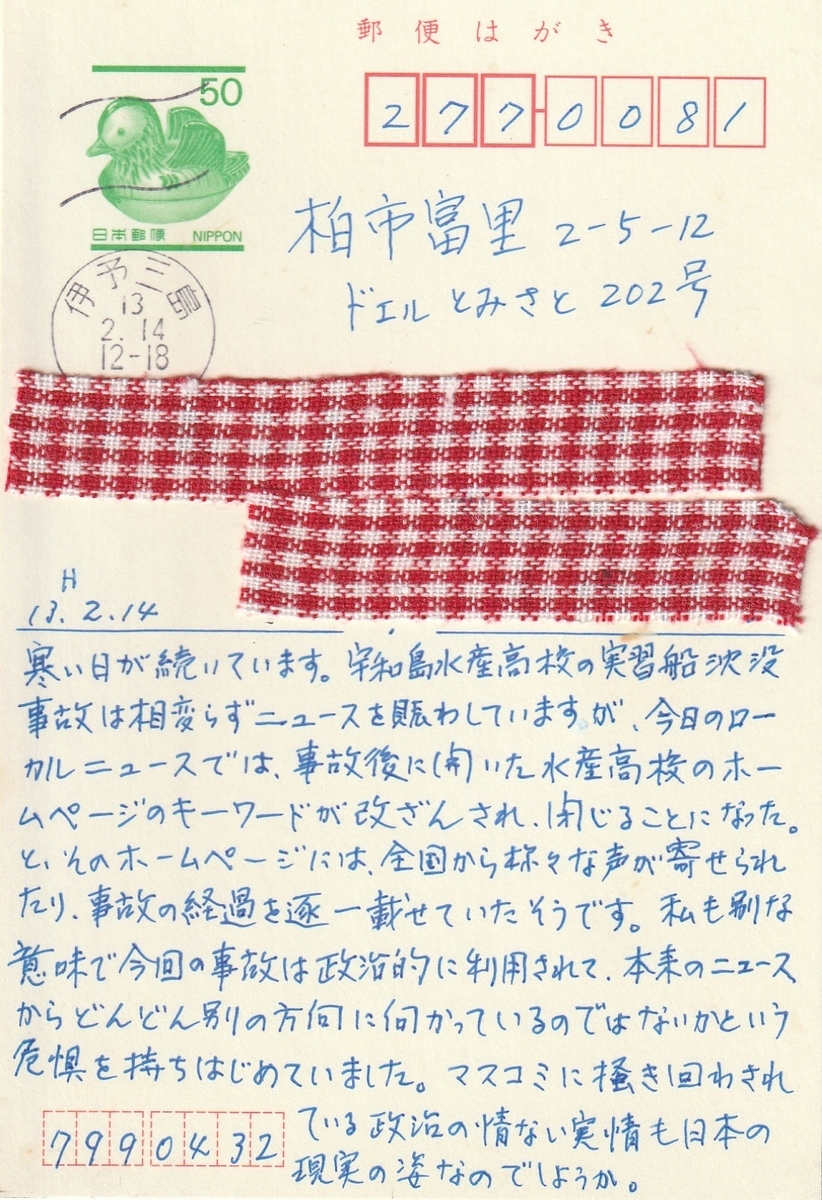 郵便はがき
50
日本郵便 NIPPON
277-0081
柏市富里 2-5-12
ドエル とみさと 202号
伊予三島
13
2.14
12-18
H
13.2.14
寒い日が続いています。宇和島水産高校の実習船沈没
事故は相変らずニュースを賑わしていますが、今日のロー
カルニュースでは、事故後に開いた水産高校のホー
ムページのキーワードが改ざんされ、閉じることになった。
と、そのホームページには、全国から様々な声が寄せられ
たり、事故の経過を逐一載せていたそうです。私も別な
意味で今回の事故は政治的に利用されて、本来のニュース
からどんどん別の方向に向かっているのではないかという
危惧を持ちはじめていました。マスコミに掻き回わされ
ている政治の情ない実情も日本の
現実の姿なのでしょうか。
7990432